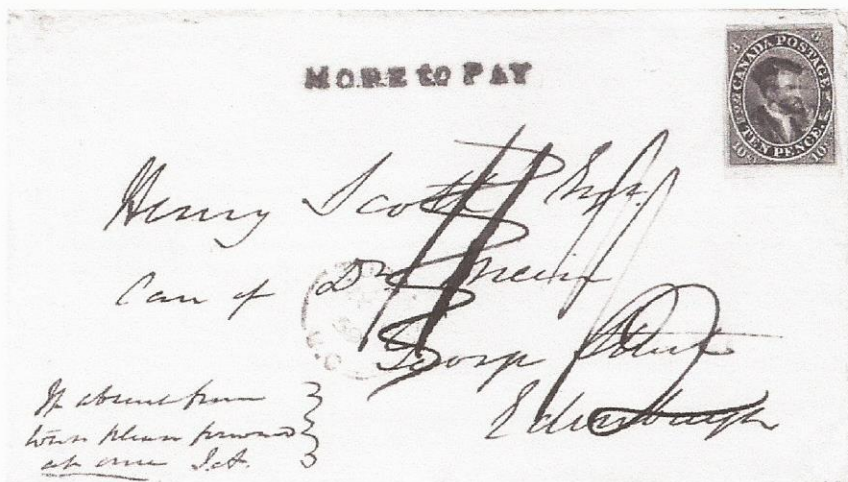 MORE to PAY
CANADA POSTAGE
TEN PENCE
Henry Scott Esqr.
Care of Dr.
George Street
Edinburgh
If absent from
town please forward
at once